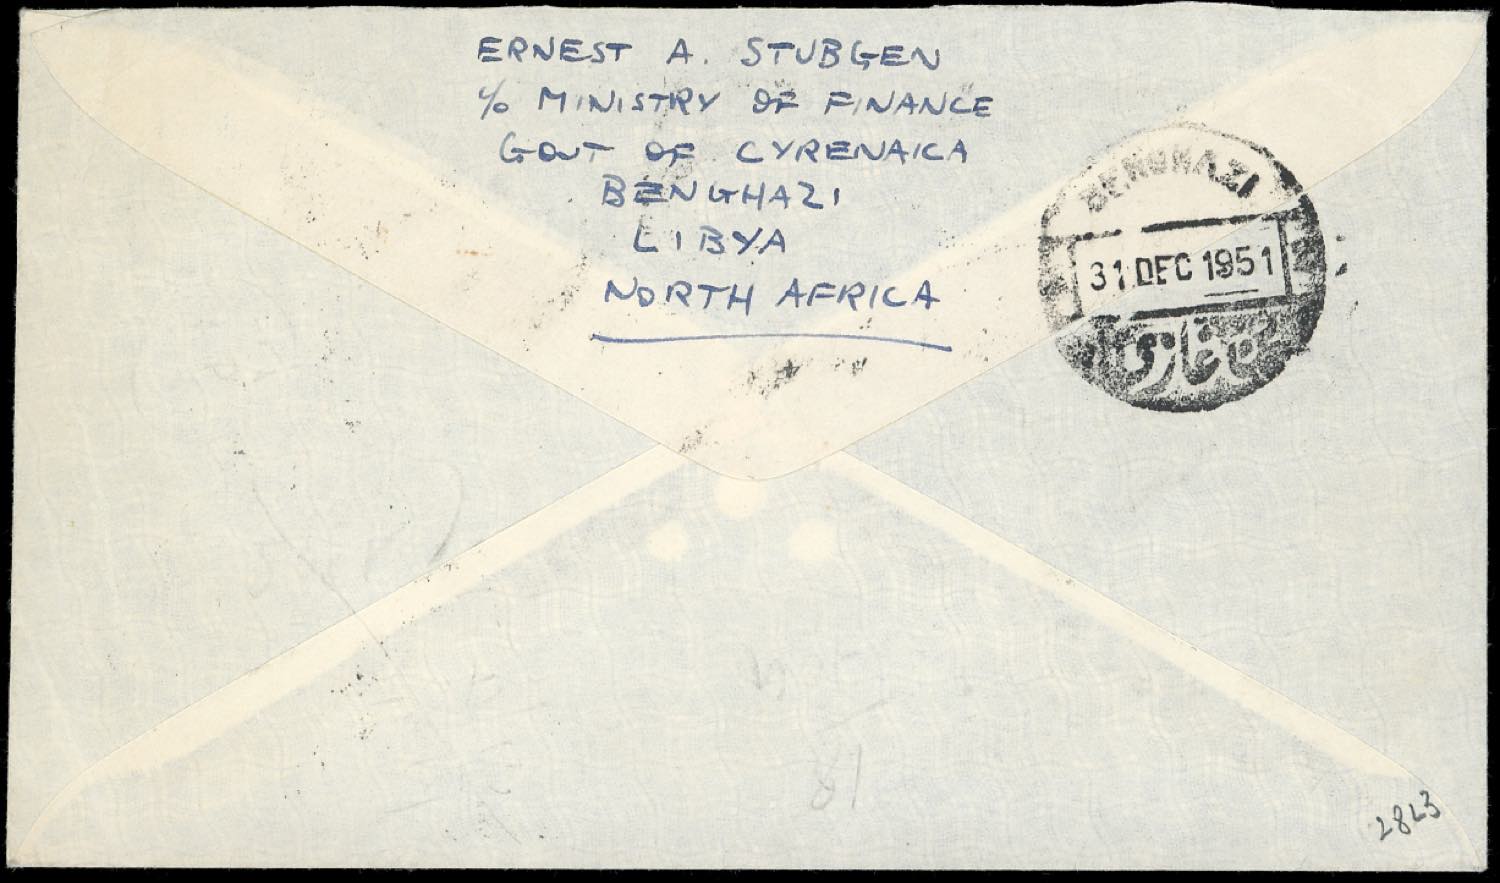 ERNEST A. STUBGEN
℅ MINISTRY OF FINANCE
GOVT OF CYRENAICA
BENGHAZI
LIBYA
NORTH AFRICA
BENGHAZI
31 DEC 1951
بن غازي
2823